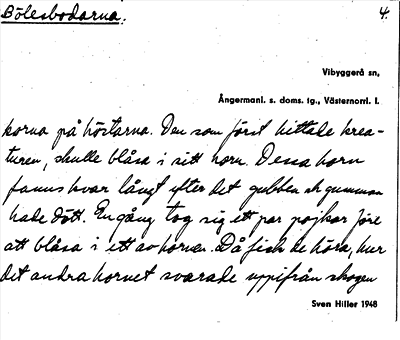 Bölesbodarna.
4.
Vibyggerå sn,
Ångermanl. s. doms. tg., Västernorrl. l.
korna på höstarna. Den som först hittade krea-
turen, skulle blåsa i sitt horn. Dessa horn
fanns kvar långt efter det gubben och gumman
hade dött. En gång tog sig ett par pojkar före
att blåsa i ett av hornen. Då fick de höra, hur
det andra hornet svarade uppifrån skogen
Sven Hiller 1948